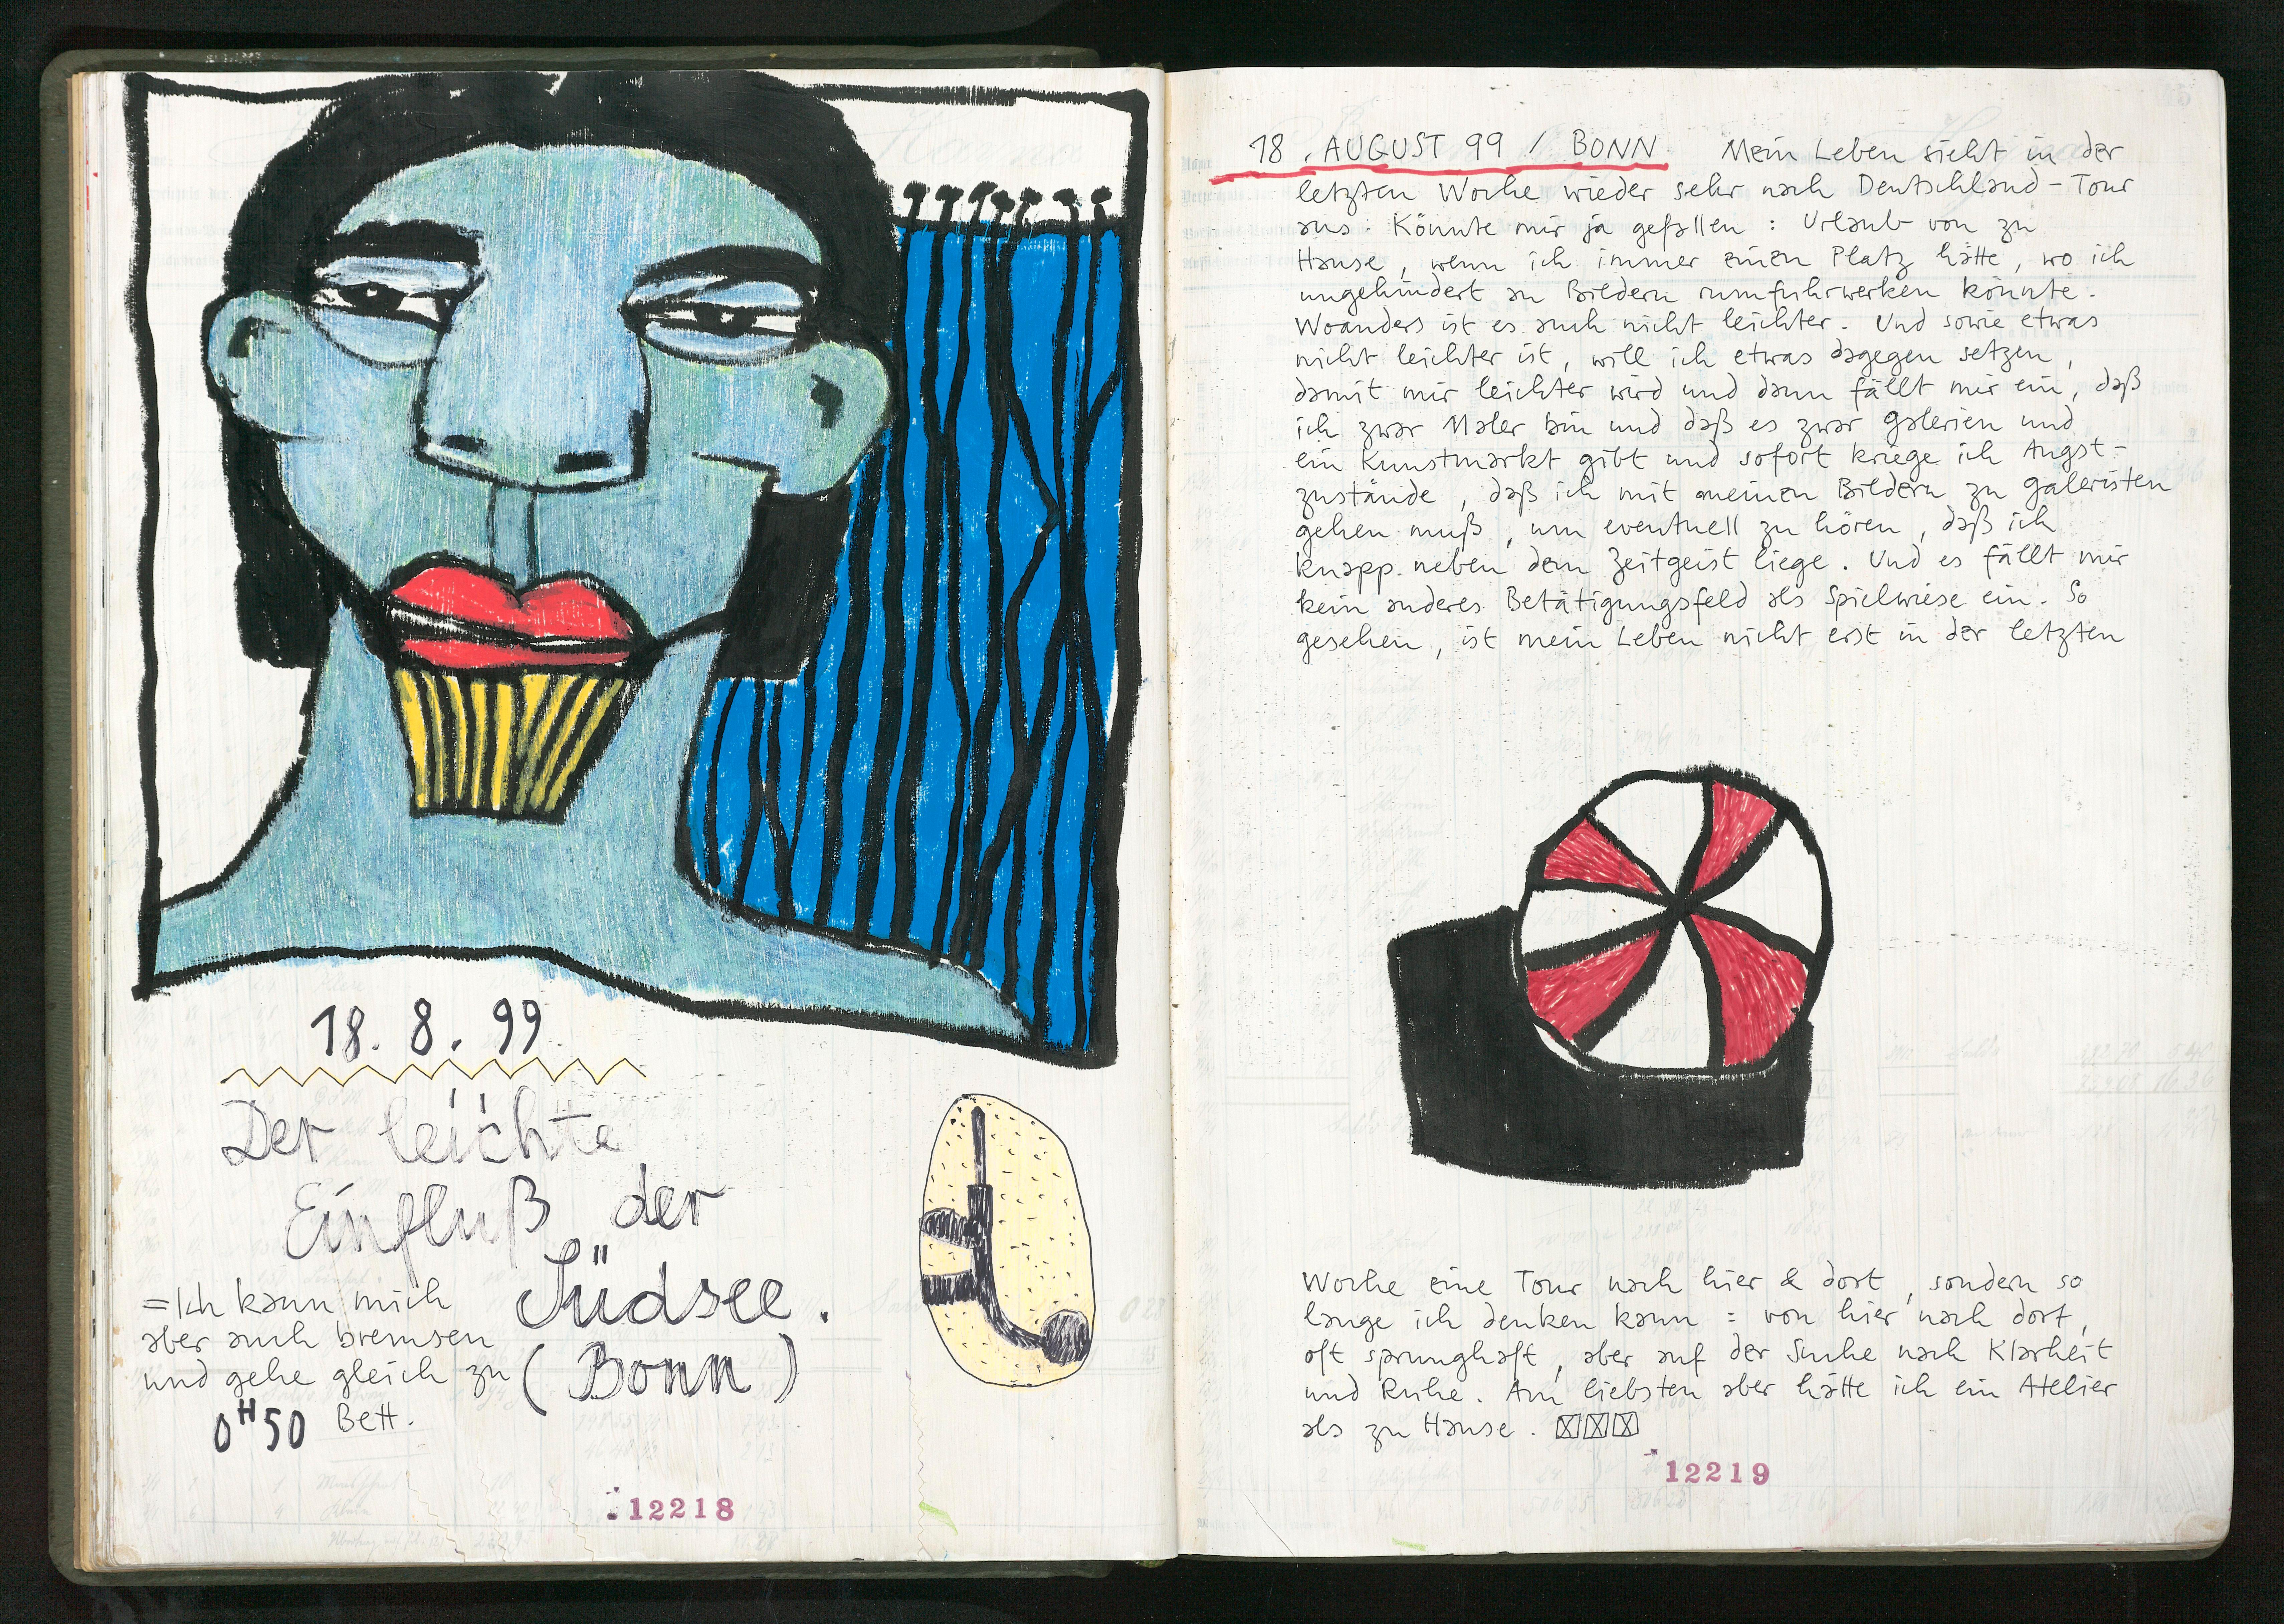 18. 8. 99
Der leichte
Einfluß der
Südsee.
(Bonn)
= Ich kann mich
aber auch bremsen
und gehe gleich zu
0H50 Bett.
12218
18. AUGUST 99 / BONN Mein Leben sieht in der
letzten Woche wieder sehr nach Deutschland-Tour
aus. Könnte mir ja gefallen: Urlaub von zu
Hause, wenn ich immer einen Platz hätte, wo ich
ungehindert an Bildern rumfuhrwerken könnte.
Woanders ist es auch nicht leichter. Und sowie etwas
nicht leichter ist, will ich etwas dagegen setzen,
damit mir leichter wird und dann fällt mir ein, daß
ich zwar Maler bin und daß es zwar Galerien und
ein Kunstmarkt gibt und sofort kriege ich Angst-
zustände, daß ich mit meinen Bildern zu Galeristen
gehen muß, um eventuell zu hören, daß ich
knapp neben dem Zeitgeist liege. Und es fällt mir
kein anderes Betätigungsfeld als Spielwiese ein. So
gesehen, ist mein Leben nicht erst in der letzten
Woche eine Tour nach hier & dort, sondern so
lange ich denken kann: von hier nach dort,
oft sprunghaft, aber auf der Suche nach Klarheit
und Ruhe. Am liebsten aber hätte ich ein Atelier
als zu Hause.
12219